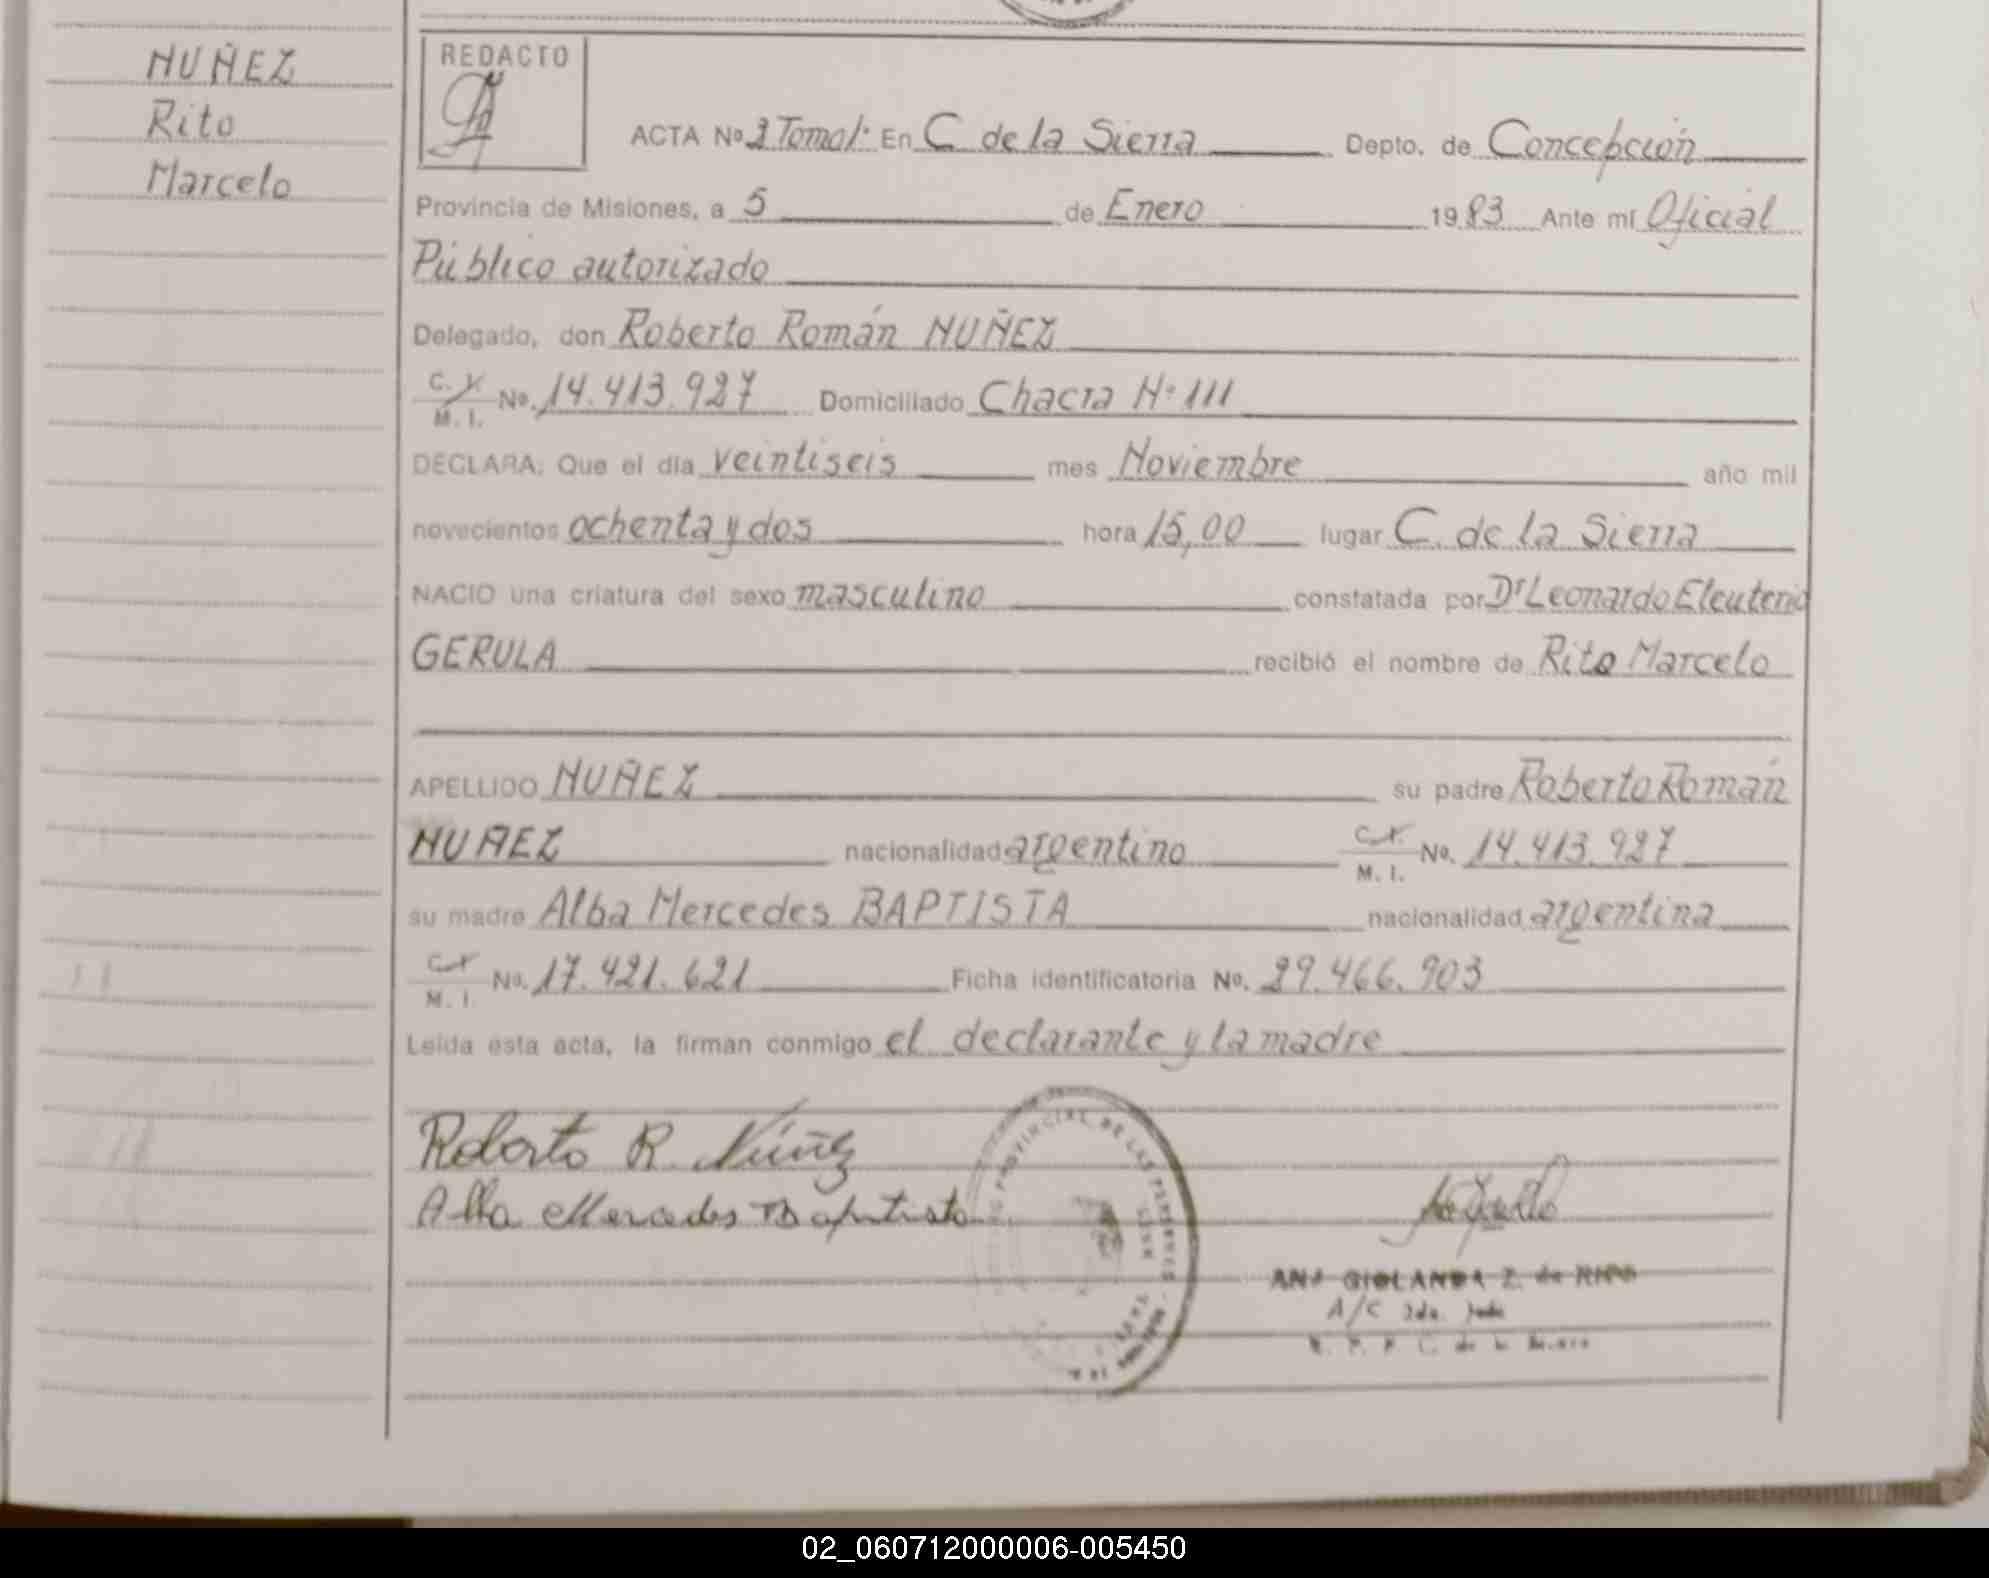 NUÑEZ
Rito
Marcelo
REDACTO
ACTA No. Tomo I. En C de la Sierra Depto. de Concepción
Provincia de Misiones, a 5 de Enero 1983 Ante mí Oficial
Público autorizado
Delegado, don Roberto Román NUÑEZ
C. I. M. I. No. 14.413.927 Domiciliado Chacra N° 111
DECLARA: Que el día veintiseis mes Noviembre año mil
novecientos ochenta y dos hora 15,00 lugar C. de la Sierra
NACIO una criatura del sexo masculino constatada por Dr Leonardo Eleuterio
GERULA recibió el nombre de Rito Marcelo
APELLIDO NUÑEZ su padre Roberto Román
NUÑEZ nacionalidad argentino M. I. No. 14.413.927
su madre Alba Mercedes BAPTISTA nacionalidad argentina
M. I. No. 17.421.621 Ficha identificatoria No. 29.466.903
Leída esta acta, la firman conmigo el declarante y la madre
Roberto R. Núñez
Alba Mercedes Baptista
PROVINCIAL DE LAS PERSONAS
ANA GIOLANDA Z. de RIOS
A/C
02_060712000006-005450